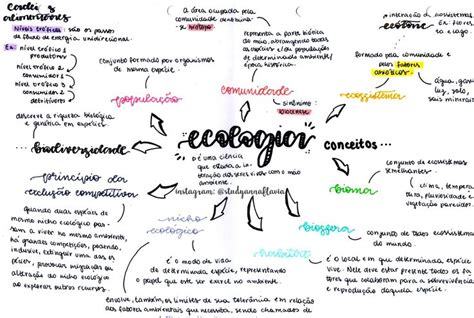 Cadeias
alimentares
Níveis tróficos: são os passos
do fluxo de energia unidirecional.
Ex: nível trófico 1
produtores
nível trófico 2
consumidor 1
nível trófico 3
consumidor 2
detritívoros
a área ocupada pela
comunidade
se biótopo
conjunto formado por organismos
de mesma espécie.
população
representa a parte biótica
do meio, abrangendo todas
as espécies e/ou populações
de determinado ambiente/
área específica.
comunidade
sinônimo
biocenose
interação de ecossistemas
Ex: flores
ta e lago.
ecótono
formado pela comunidade
e pelos fatores
abióticos
água, gases
luz, solo,
seus minerais
ecossistema
descreve a riqueza biológica
e genética em espécies
...biodiversidade
ecologia
é uma ciência
que estuda a in
teração dos seres vivos com o meio
ambiente.
instagram: @studyannaflavia
conceitos...
conjunto de ecossistemas
semelhantes.
clima, tempera
tura, pluviosidade e
vegetação parecidos.
bioma
princípio da
exclusão competitiva
quando duas espécies de
mesmo nicho ecológico pas
sam a viver no mesmo ambiente,
há grandes competições, podendo,
inclusive, extinguir uma das es
pécies, provocar migração ou
alteração do nicho ecológico
ao explorar outros recursos.
nicho
ecológico
é o modo de vida
de determinada espécie, representando
o papel que este ser exerce no ambiente.
envolve, também, os limites de sua tolerância em relação
aos fatores ambientais que necessita, sendo chamados de
biosfera
conjunto de todos ecossistemas
do mundo.
habitat
é o local em que determinada espécie
vive. Nele deve estar presente todos os fa
tores que colaboram para a sobrevivência
e reprodução daquela espécie.